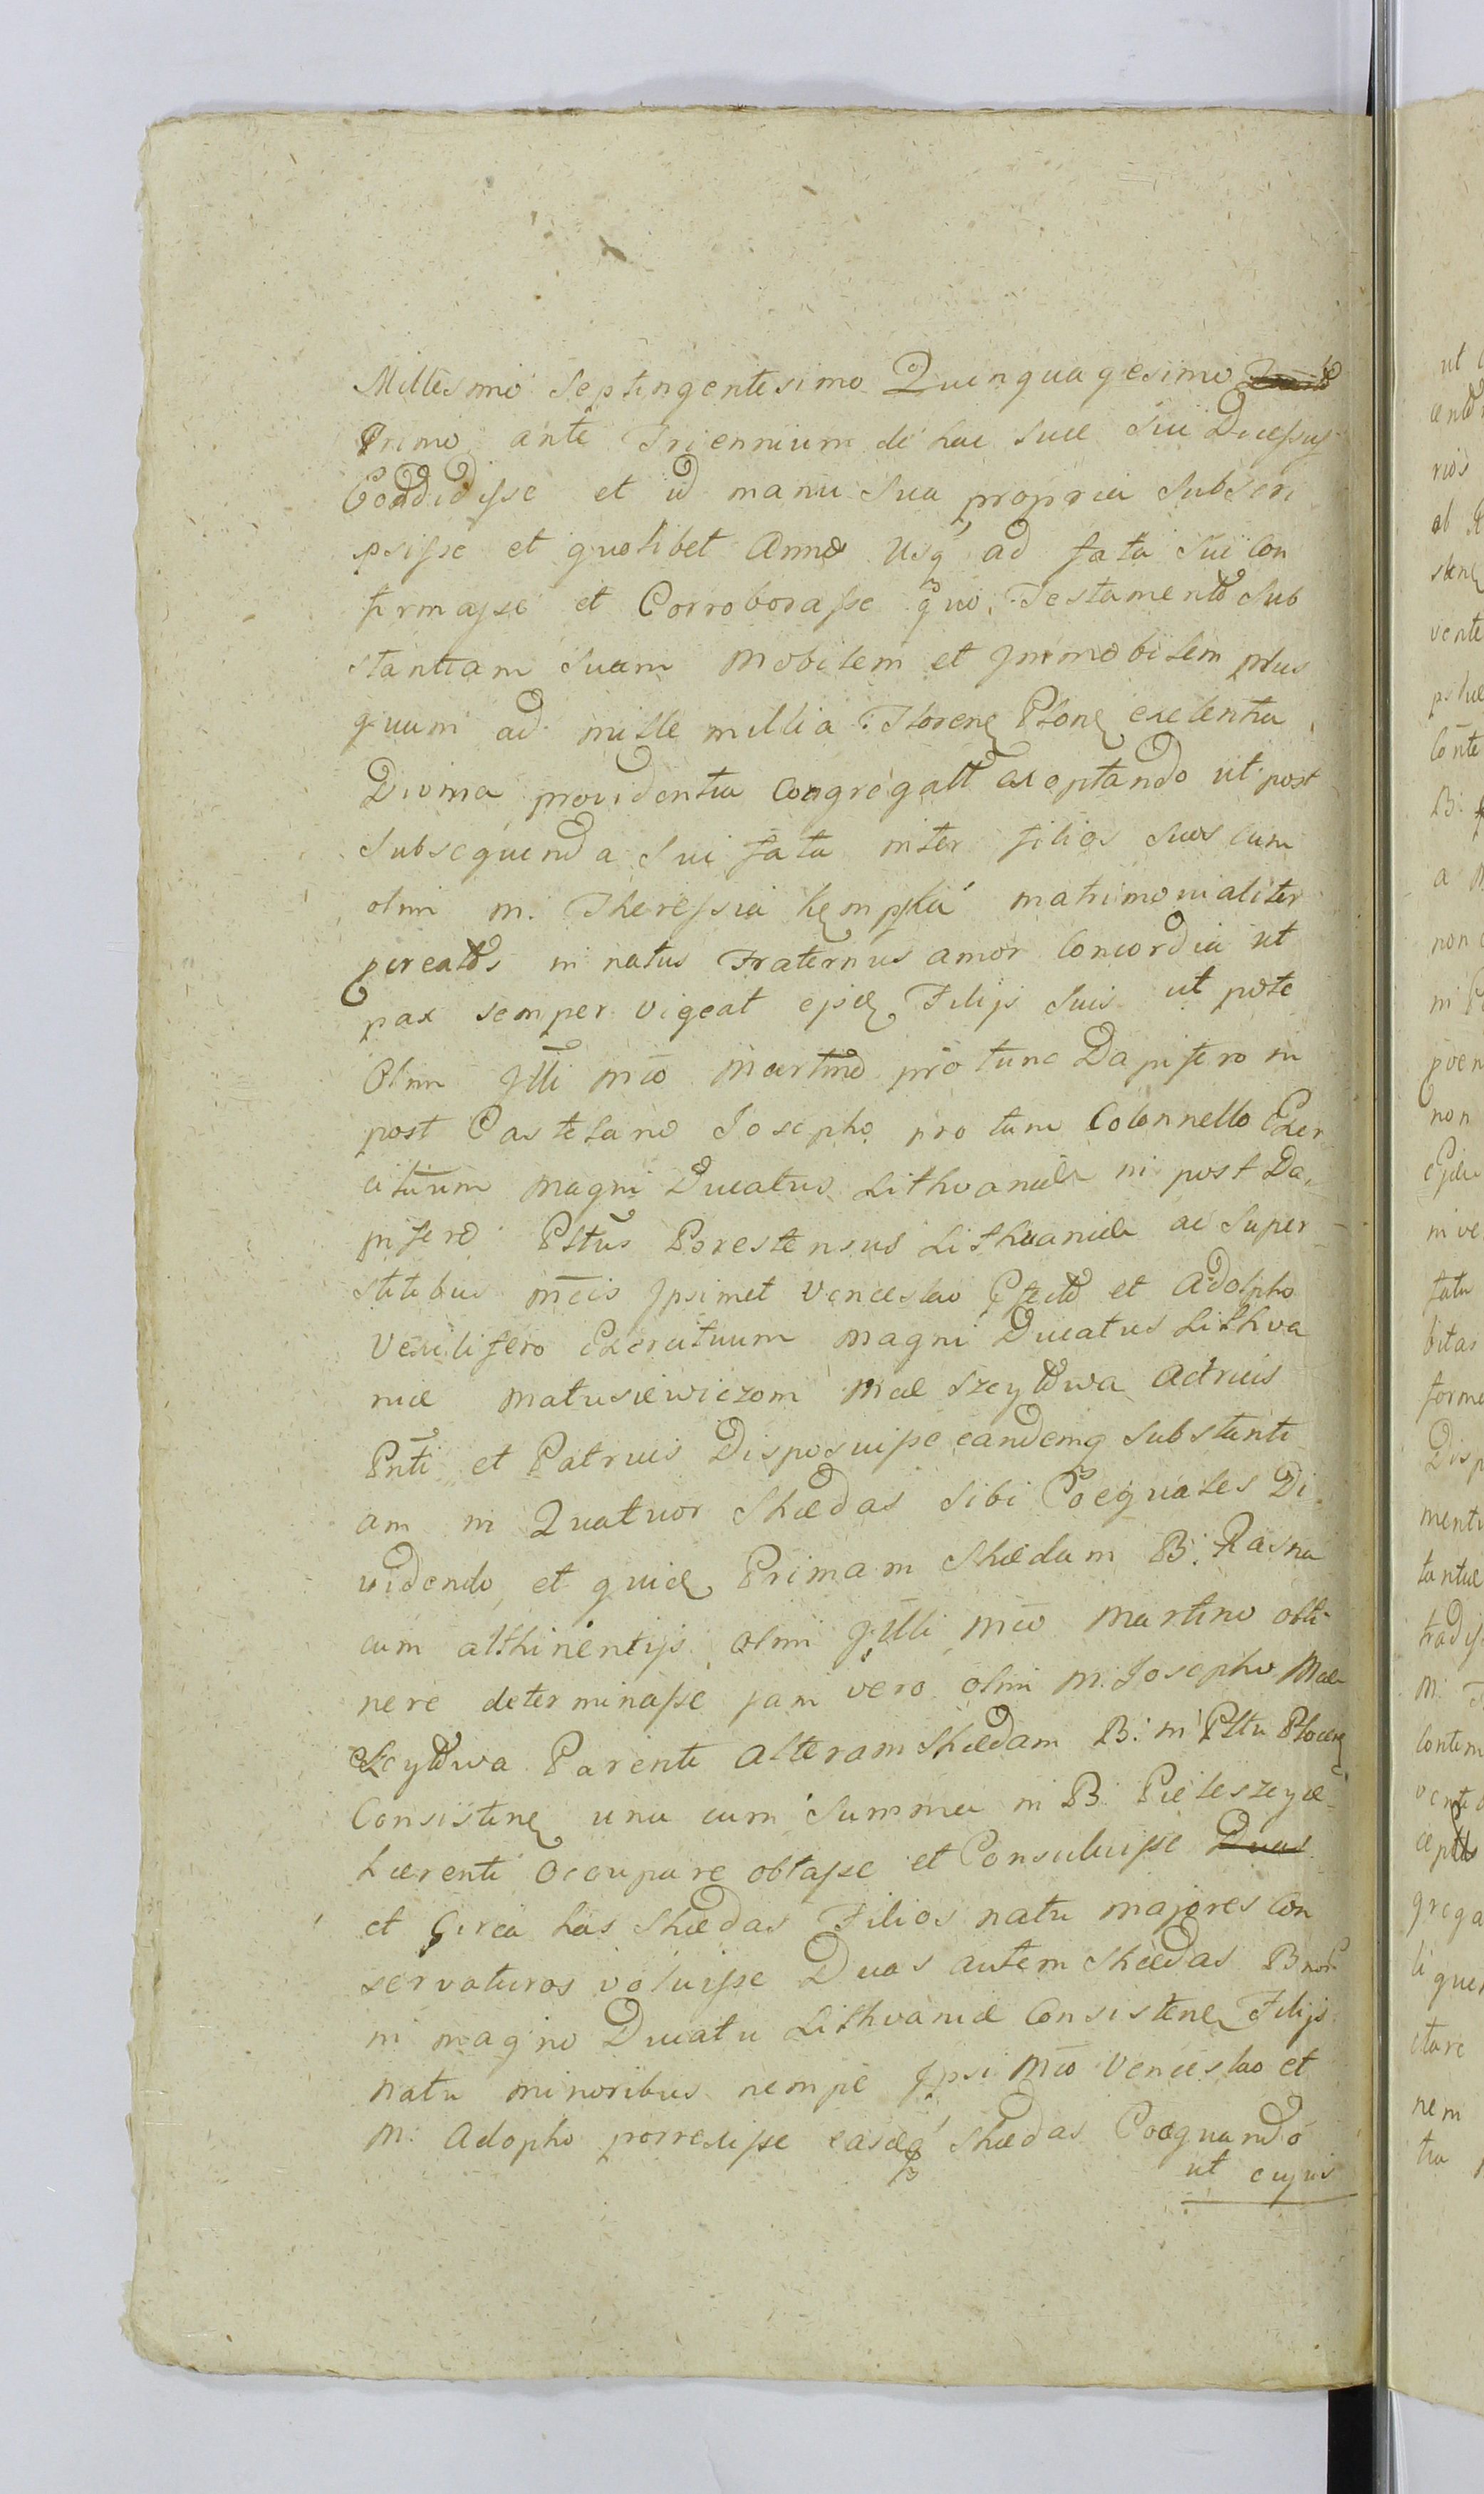 Millesimo Septingentesimo Quinquagesimo
Primo ante Triennium de hac luce sui Dicessus
Condidisse et id manu sua propria Subscri
psisse et quolibet Anno Usq ad fata sui Con
firmasse et Corroborasse quo Testamento Sub
stantiam suam Mobilem et Immobilem plus
quam ad mille millia Floreng Plong exelentia
Divina providentia Congregatt exoptando ut post
Subsequenda sui fata inter filios suos cum
olim M. Theressia Kempska matrimonialiter
pcreatos in natus Fraternus amor Concordia ut
pax semper vigeat ejsdg Filijs suis ut pote
Olim Jlli Mco Martino pro tunc Dapifero in
post Castelano Josepho pro tunc Colonnello Exer
cituum Magni Ducatus Lithvaniæ in post Da
pifero Pltus Brestensis Lithvaniæ ac Super
stitibus Mcis Ipsimet Venceslao et Adolpho
Vexilifero Exercituum Magni Ducatus Lithva
niæ Matusiewiczom Mæ Szeydtwa Actricis
Pnti et Patruis Disposuisse eandemq Substanti
am in Quatuor Shædas sibi Coequales Di
videndo et quidg Primam Shædam B. Rasna
cum atthinentijs olim Jlli Mco Martino obti
nere determinasse jam vero olim M. Josepho Mæ
Szeydtwa Parenti Alteram Shædam B. in Pltu Plocens
Consisteng una cum Summa in B. Pieleszeyce
hærenti Occupare obtasse et Consuluisse Duas
et Circa has Shædas Filios natu majores Con
servaturos voluisse Duas autem Shædas Bnor
in magno Ducatu Lithvaniæ Consisteng Filijs
natu minoribus nempe Ipsi Mco Venceslao et
M. Adopho porrexisse easdq Shædas Coequando
ut cujus